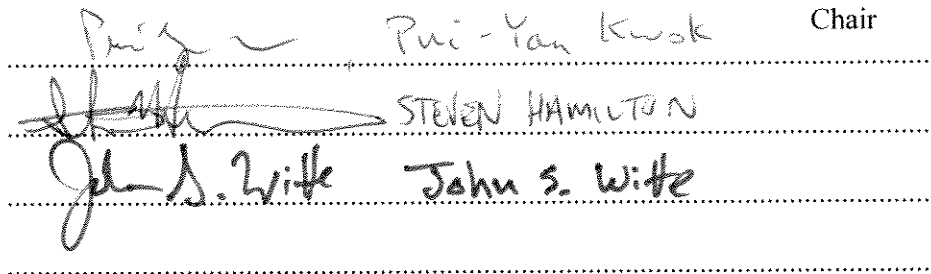 Pui-Yan Kwok Chair
STEVEN HAMILTON
John S. Witte John S. Witte